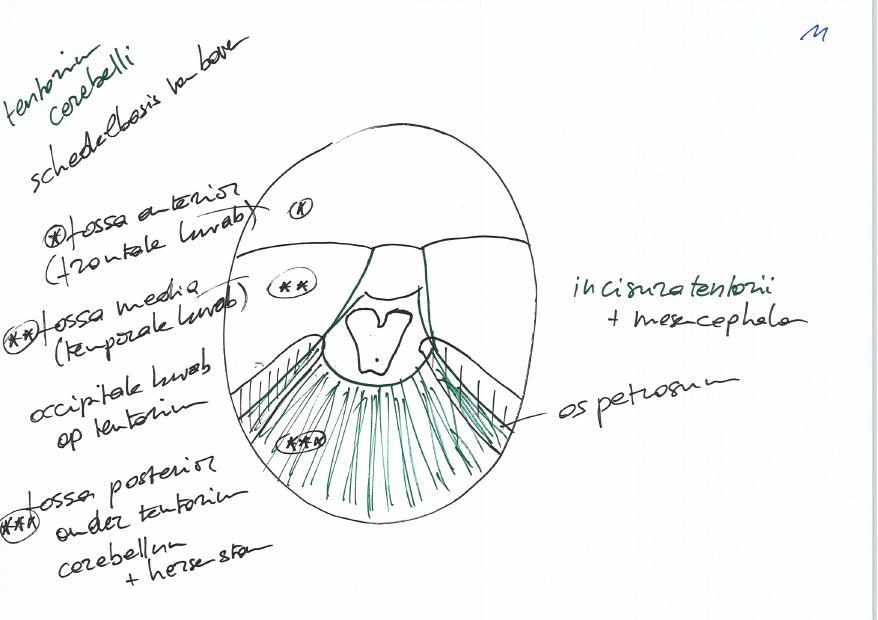 M
tentorium
cerebelli
schedelbasis van boven
* fossa anterior
(frontale kwab)
*
** fossa media
(temporale kwab)
**
occipitale kwab
op tentorium
*** fossa posterior
onder tentorium
cerebellum
+ hersenstam
***
incisura tentorii
+ mesencephalon
os petrosum